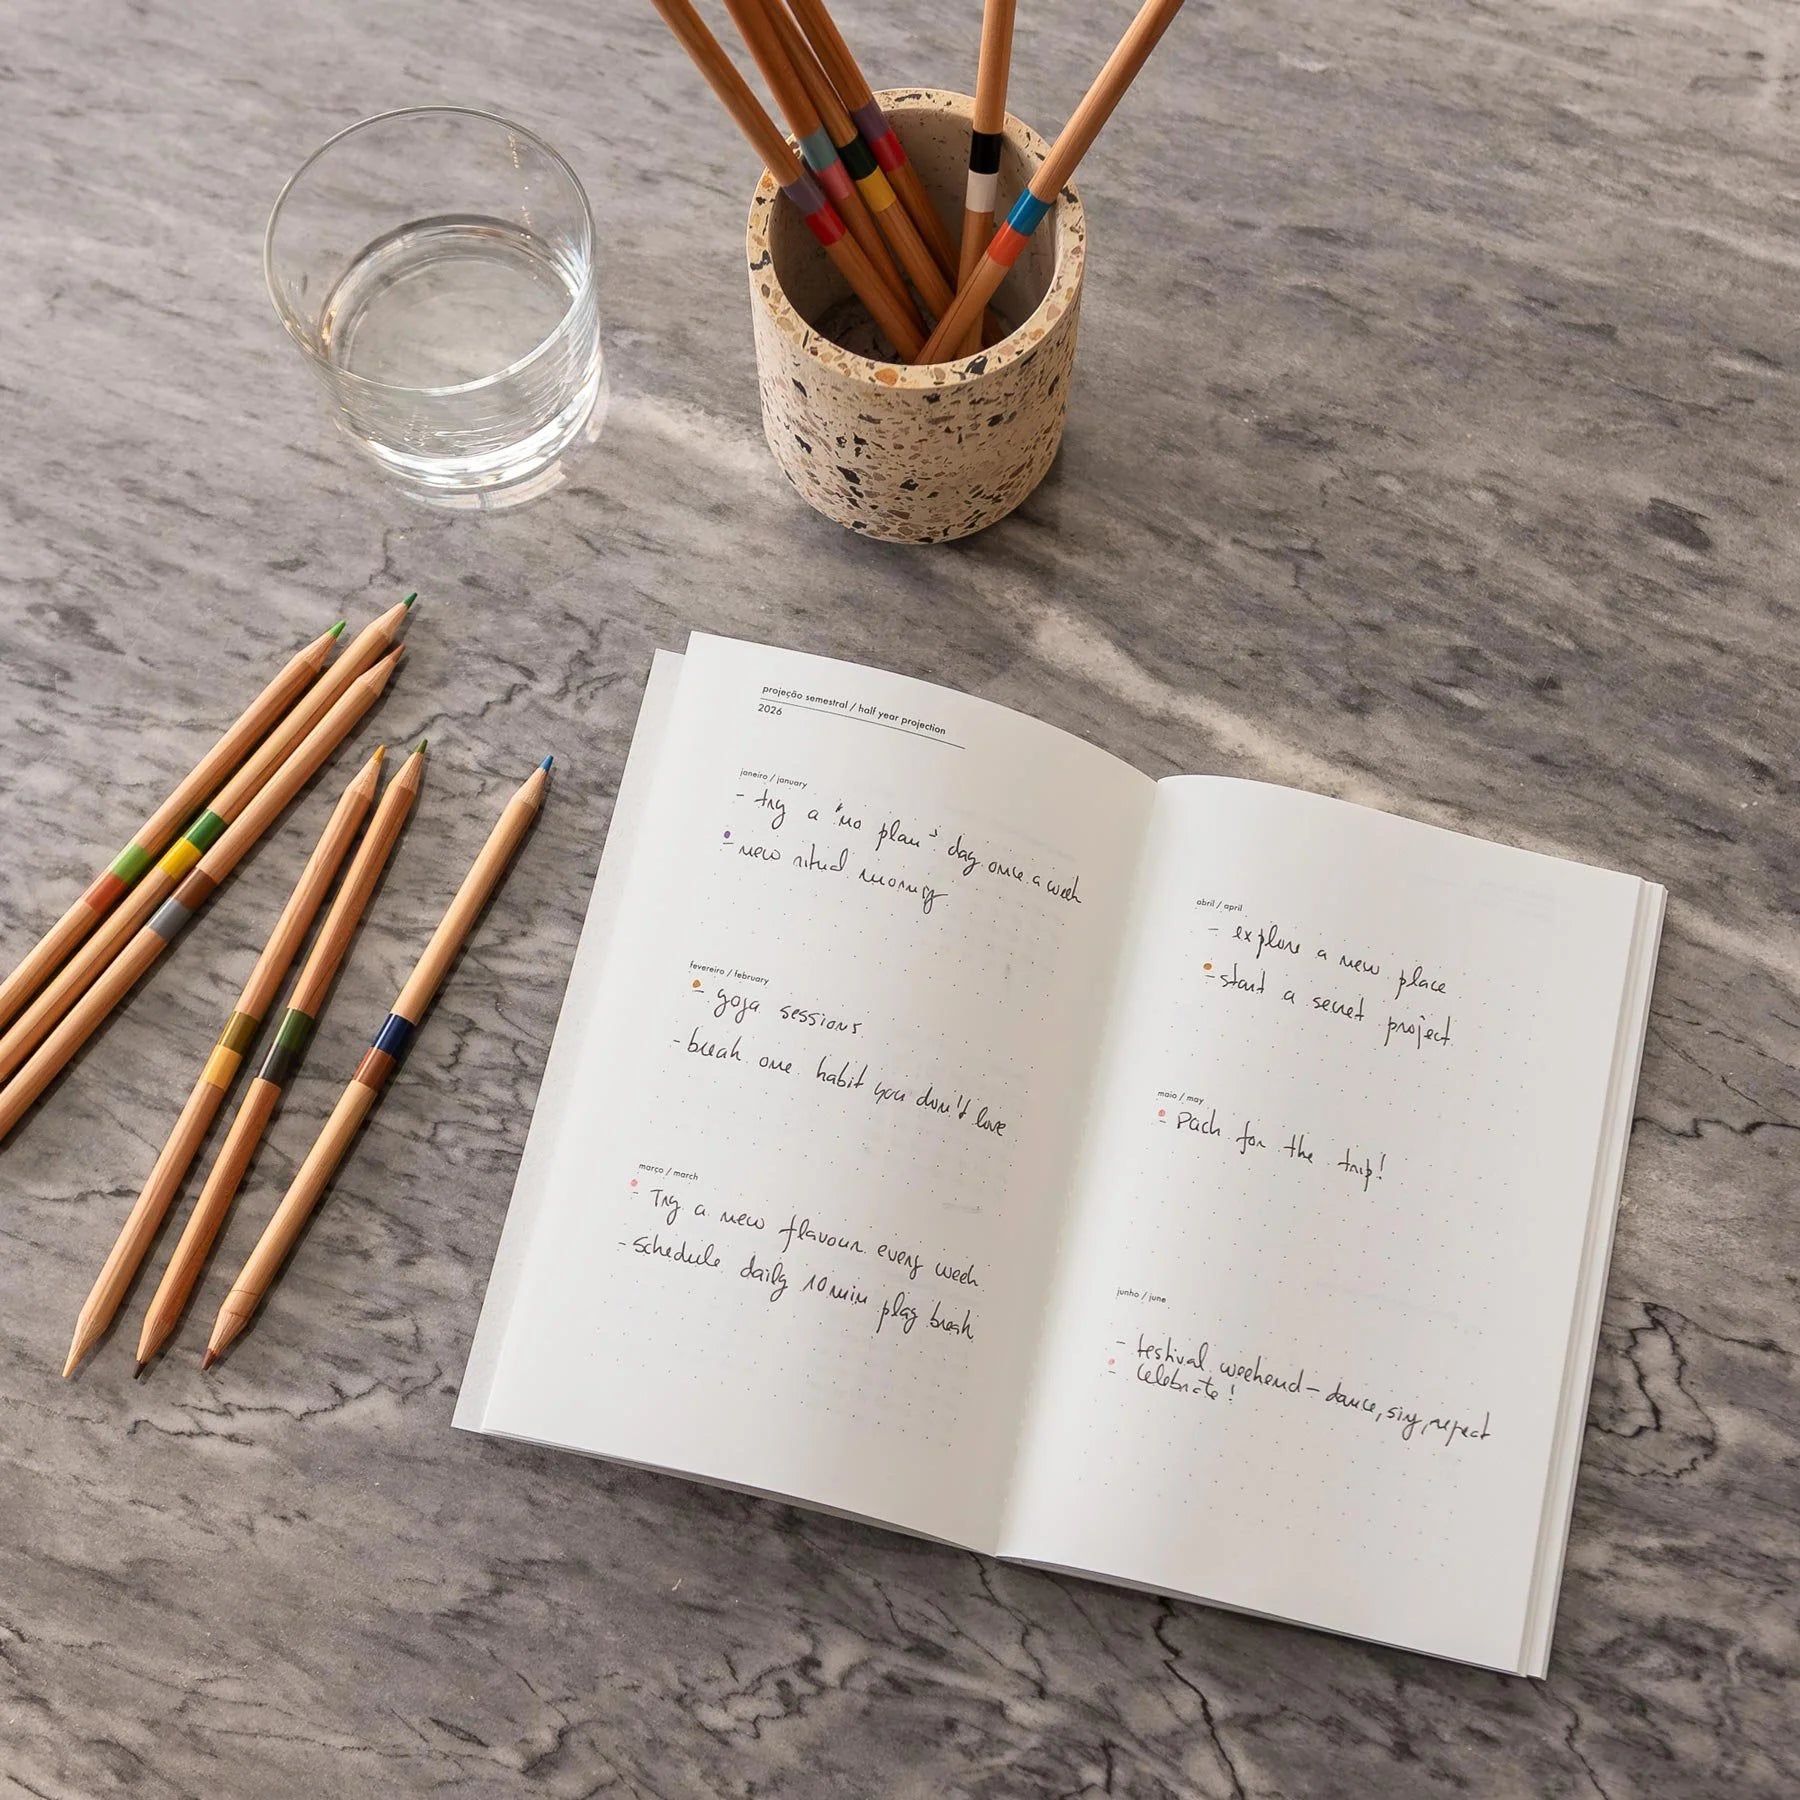 projeção semestral / half year projection
2026
janeiro / january
- try a "no plan" day once a week
- new ritual morning
fevereiro / february
- yoga sessions
- break one habit you don't love
março / march
- Try a new flavour every week
- schedule daily 10 min play break
abril / april
- explore a new place
- start a secret project
maio / may
- Pack for the trip!
junho / june
- festival weekend - dance, sing, repeat
- Celebrate!